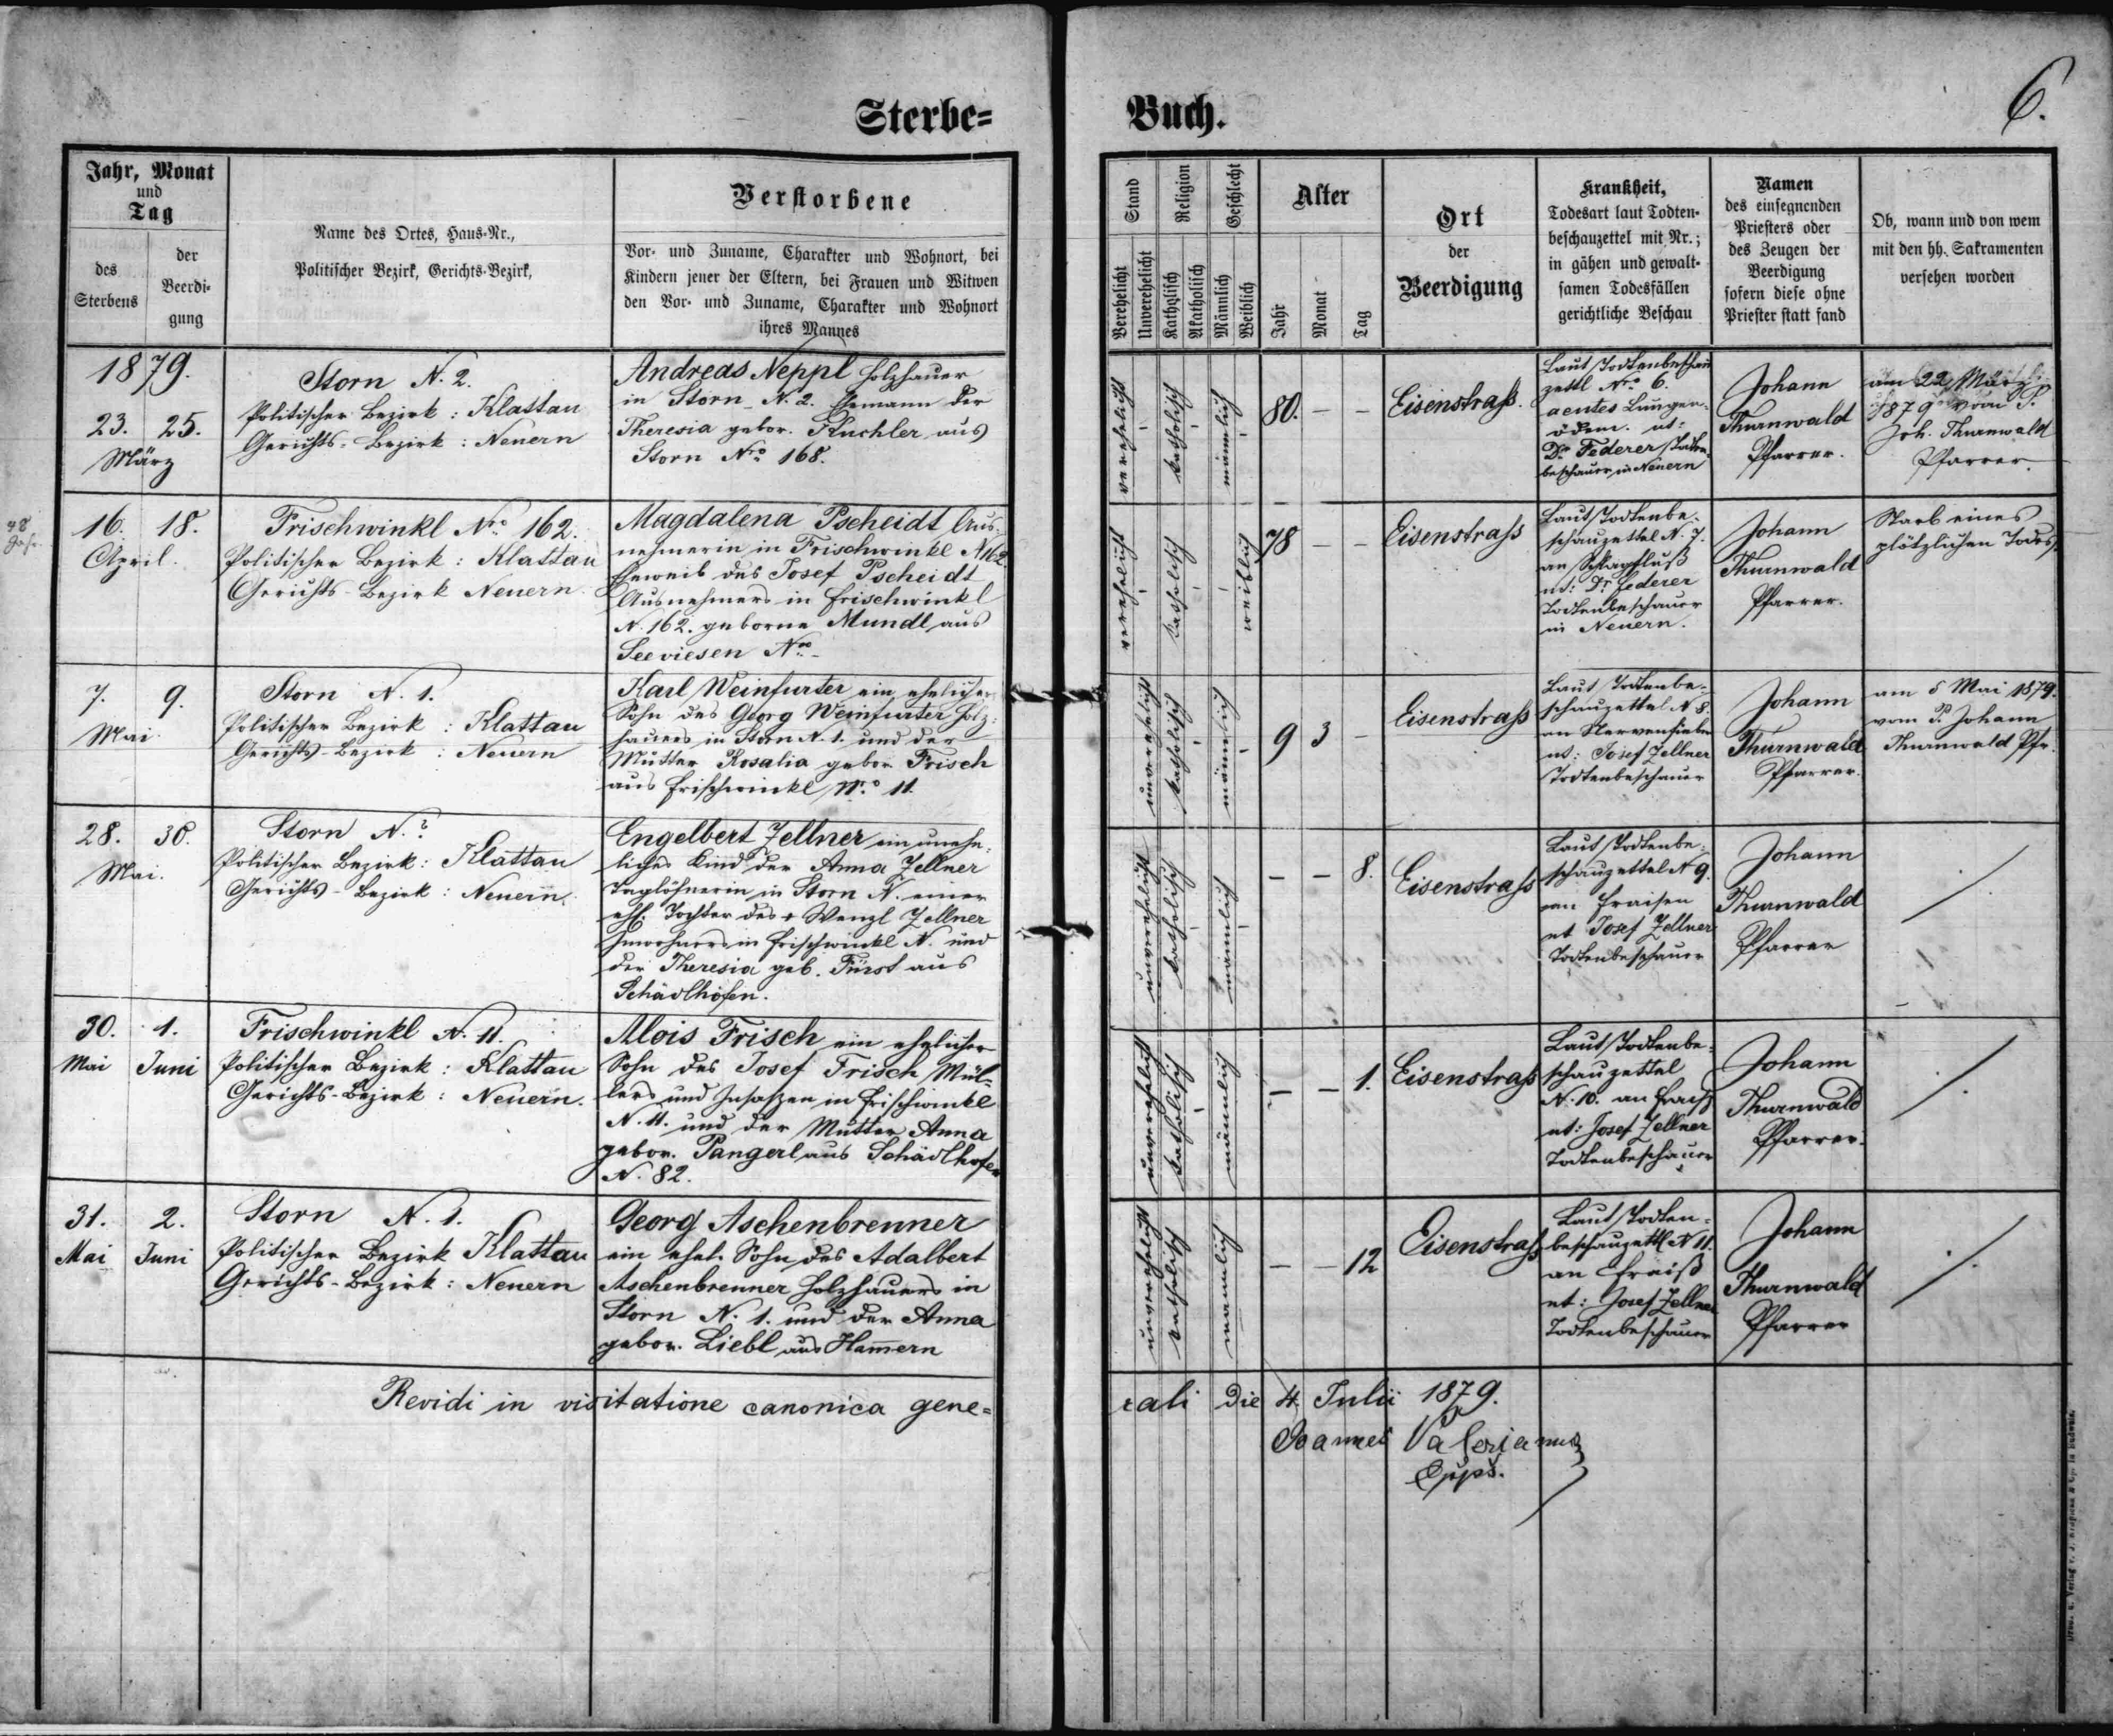 Sterbe=
Buch.
6.
Jahr, Monat
und
Tag
des
Sterbens
der
Beerdi-
gung
Name des Ortes, Haus-Nr.,
Politischer Bezirk, Gerichts-Bezirk,
Verstorbene
Vor- und Zuname, Charakter und Wohnort, bei
Kindern jener der Eltern, bei Frauen und Witwen
den Vor- und Zuname, Charakter und Wohnort
ihres Mannes
Stand
Verehelicht
Unverehelicht
Religion
Katholisch
Akatholisch
Geschlecht
Männlich
Weiblich
Alter
Jahr
Monat
Tag
Ort
der
Beerdigung
Krankheit,
Todesart laut Todten-
beschauzettel mit Nr.;
in gähen und gewalt-
samen Todesfällen
gerichtliche Beschau
Namen
des einsegnenden
Priesters oder
des Zeugen der
Beerdigung
sofern diese ohne
Priester statt fand
Ob, wann und von wem
mit den hh. Sakramenten
versehen worden
1879.
23. 25.
März
Storn N. 2.
Politischer Bezirk : Klattau
Gerichts-Bezirk : Neuern
Andreas Neppl Holzhauer
in Storn N. 2. Ehemann der
Theresia gebor. Kuchler aus
Storn Nro 168.
verehelicht
katholisch
männlich
80. – –
Eisenstrass.
Laut Todtenbeschau
zettl Nro 6.
acutes Lungen-
ödem. ut:
Dr Federer Todten-
beschauer in Neuern
Johann
Thurnwald
Pfarrer.
am 22 März
1879 vom P.
Joh. Thurnwald
Pfarrer.
78
Jahr
16. 18.
April.
Frischwinkl Nro 162.
Politischer Bezirk : Klattau
Gerichts-Bezirk Neuern.
Magdalena Pscheidt Aus-
nehmerin in Frischwinkl N 162
Eheweib des Josef Pscheidt
Ausnehmers in Frischwinkl
N. 162. geborne Mundl aus
Seewiesen Nro
verehelicht
katholisch
weiblich
78 – –
Eisenstrass
Laut Todtenbe-
schauzettel N. 7.
an Schlagfluß
ut: Dr Federer
Todtenbeschauer
in Neuern.
Johann
Thurnwald
Pfarrer.
Starb eines
plötzlichen Todes.
7. 9.
Mai.
Storn N. 1.
Politischer Bezirk : Klattau
Gerichts-Bezirk : Neuern
Karl Weinfurter ein ehelicher
Sohn des Georg Weinfurter Holz-
hauers in Storn N. 1. und der
Mutter Rosalia gebor. Frisch
aus Frischwinkl Nro 11.
unverehelicht
katholisch
männlich
9 3 –
Eisenstrass
Laut Todtenbe-
schauzettel N 8.
an Nervenfieber
ut: Josef Zellner
Todtenbeschauer
Johann
Thurnwald
Pfarrer.
am 5 Mai 1879.
vom P. Johann
Thurnwald Pfr.
28. 30.
Mai.
Storn N.?
Politischer Bezirk : Klattau
Gerichts-Bezirk : Neuern.
Engelbert Zellner ein unehe-
liches Kind der Anna Zellner
Taglöhnerin in Storn N. einer
ehl. Tochter des + Wenzl Zellner
Inwohners in Frischwinkl N. und
der Theresia geb. Fürst aus
Schädlhöfen.
unverehelicht
katholisch
männlich
– – 8.
Eisenstrass
Laut Todtenbe-
schauzettel N 9.
an Fraisen
ut Josef Zellner
Todtenbeschauer
Johann
Thurnwald
Pfarrer
30. 1.
Mai Juni
Frischwinkl N. 11.
Politischer Bezirk : Klattau
Gerichts-Bezirk : Neuern.
Alois Frisch ein ehelicher
Sohn des Josef Frisch Mül-
lers und Insassen in Frischwinkl
N. 11. und der Mutter Anna
gebor. Pangerl aus Schädlhofen
N. 82.
unverehelicht
katholisch
männlich
– – 1.
Eisenstrass
Laut Todtenbe-
schauzettel
N. 10. an Fraiß
ut: Josef Zellner
Todtenbeschauer
Johann
Thurnwald
Pfarrer.
31. 2.
Mai Juni
Storn N. 1.
Politischer Bezirk Klattau
Gerichts-Bezirk : Neuern
Georg Aschenbrenner
ein ehel. Sohn des Adalbert
Aschenbrenner Holzhauers in
Storn N. 1. und der Anna
gebor. Liebl aus Ham̅ern
unverehelicht
katholisch
männlich
– – 12
Eisenstrass
Laut Todten-
beschauzettl N 11.
an Fraiß
ut: Josef Zellner
Todtenbeschauer
Johann
Thurnwald
Pfarrer
Revidi in visitatione canonica gene=
rali die 4. Julii 1879.
Joannes Valerianus
Eppus.